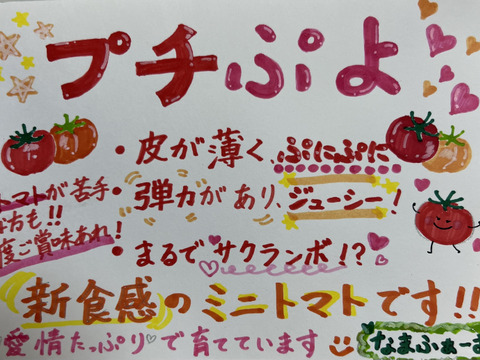 プチぷよ
・皮が薄く、ぷにぷに
・弾力があり、ジューシー!
・まるでサクランボ!?
トマトが苦手
な方も!!
度ご賞味あれ!
新食感のミニトマトです!!
愛情たっぷり♡で育てています
なまふぁーま